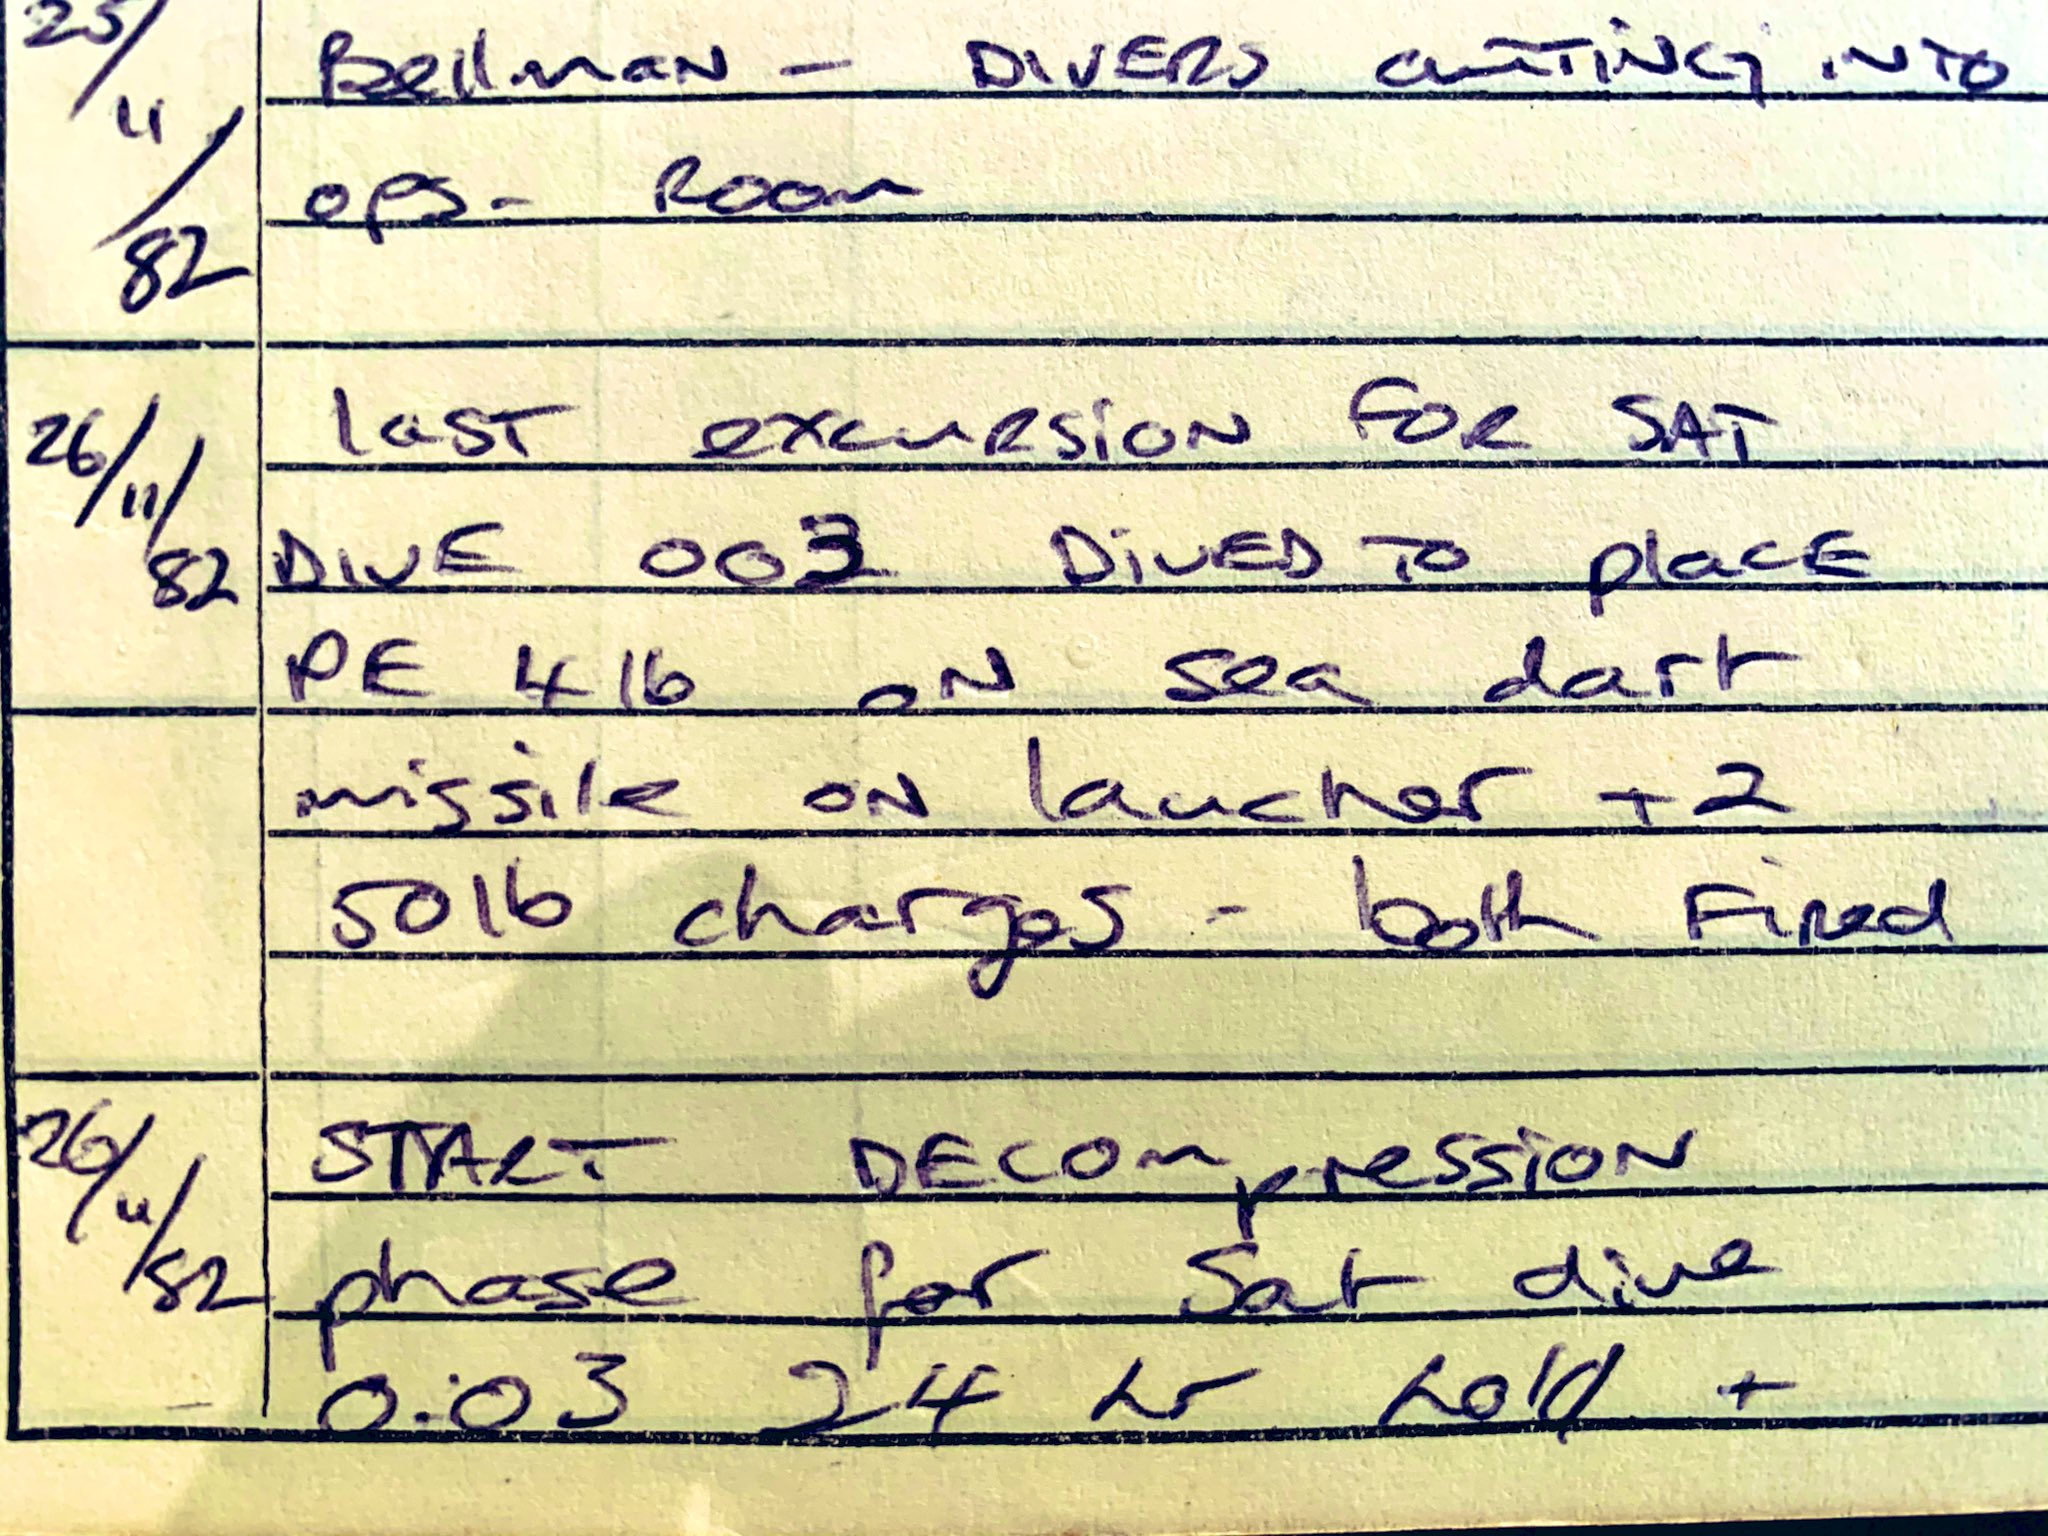 25/11/82 Bellman - DIVERS cutting into
ops- Room
26/11/82 last excursion for SAT
DIVE 003 DIVED TO place
PE 4 lb on sea dart
missile on laucher + 2
50 lb charges - both Fired
26/11/82 START DECOMpression
phase for Sat dive
0.03 24 hr hold +